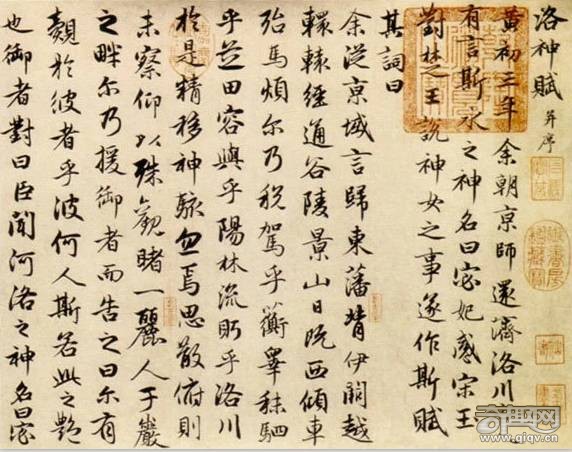 洛神賦 并序
黃初三年余朝京師還濟洛川
有言斯水之神名曰宓妃感宋王
對楚王說神女之事遂作斯賦
其詞曰
余從京域言歸東藩背伊闕越
轘轅經通谷陵景山日既西傾車
殆馬煩尔乃稅駕乎蘅皋秣駟
乎芝田容與乎陽林流眄乎洛川
於是精移神駭忽焉思散俯則
未察仰以殊觀睹一麗人于巖
之畔尔乃援御者而告之曰尔有
覿於彼者乎彼何人斯若此之艷
也御者對曰臣聞河洛之神名曰宓
www.qiqv.cn